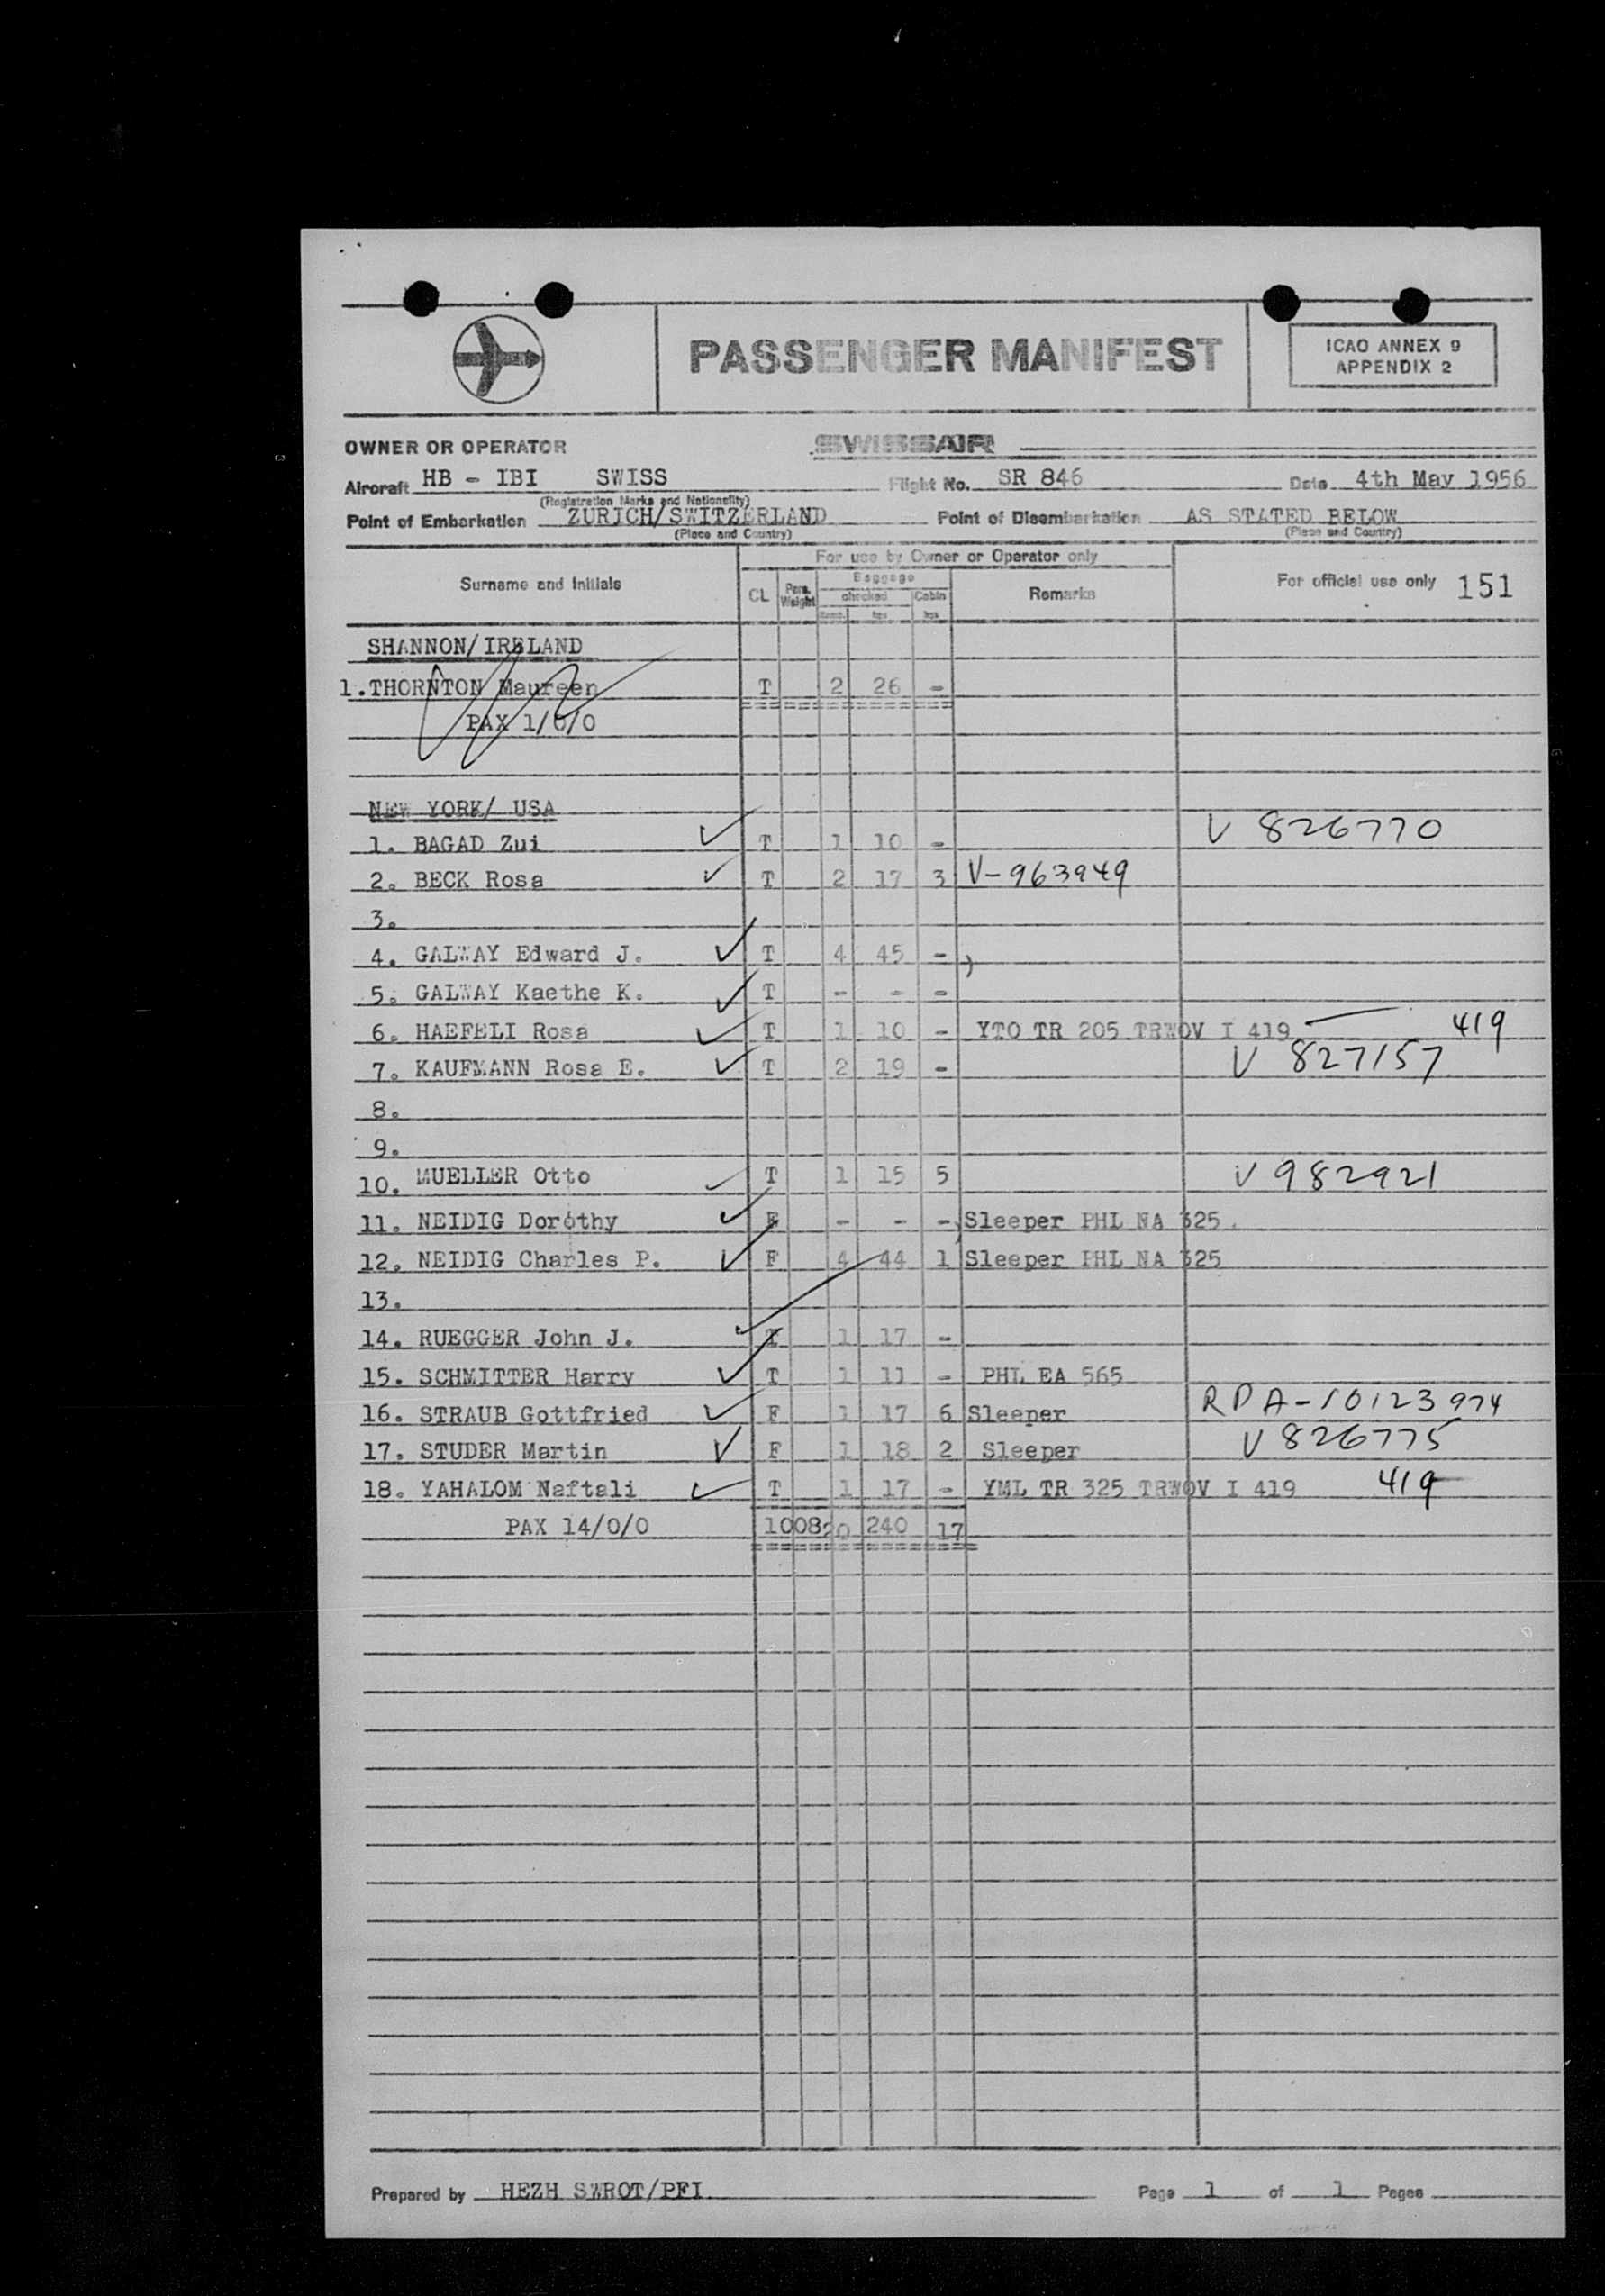 PASSENGER MANIFEST
ICAO ANNEX 9
APPENDIX 2
OWNER OR OPERATOR SWISSAIR
Aircraft HB - IBI SWISS Flight No. SR 846 Date 4th May 1956
(Registration Marks and Nationality)
Point of Embarkation ZURICH/SWITZERLAND Point of Disembarkation AS STATED BELOW
(Place and Country) (Place and Country)
For use by Owner or Operator only
Surname and Initials CL Pass. Weight Baggage checked kgs Cabin kgs Remarks For official use only 151
SHANNON/IRELAND
1. THORNTON Maureen T 2 26 -
PAX 1/0/0
NEW YORK/ USA
1. BAGAD Zui T 1 10 - V 826770
2. BECK Rosa T 2 17 3 V-963949
3.
4. GALWAY Edward J. T 4 45 - )
5. GALWAY Kaethe K. T - - -
6. HAEFELI Rosa T 1 10 - YTO TR 205 TRWOV I 419 419
7. KAUFMANN Rosa E. T 2 19 - V 827157
8.
9.
10. MUELLER Otto T 1 15 5 V 982921
11. NEIDIG Dorothy F - - - Sleeper PHL NA 325
12. NEIDIG Charles P. F 4 44 1 Sleeper PHL NA 325
13.
14. RUEGGER John J. T 1 17 -
15. SCHMITTER Harry T 1 11 - PHL EA 565
16. STRAUB Gottfried F 1 17 6 Sleeper RDA-10123974
17. STUDER Martin F 1 18 2 Sleeper V 826775
18. YAHALOM Naftali T 1 17 - YML TR 325 TRWOV I 419 419
PAX 14/0/0 1008 20 240 17
Prepared by HEZH SWROT/PFI Page 1 of 1 Pages